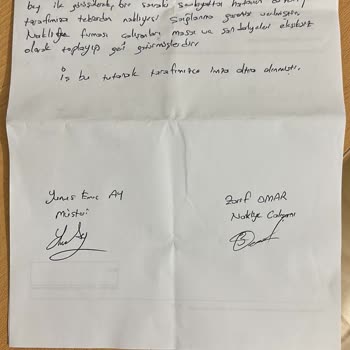 bey ilk görüşülendi, bir sonraki sevkiyatta hatanın
tarafımıza tekrardan nakliyesi sağlanma garanti verilmiştir.
Nakliye firması çalışanları masa ve sandalyeleri eksiksiz
olarak toplayıp geri götürmüşlerdir.
İş bu tutanak tarafımızca imza altına alınmıştır.
Yunus Emre AY
Müşteri
Zarif OMAR
Nakliye Çalışanı